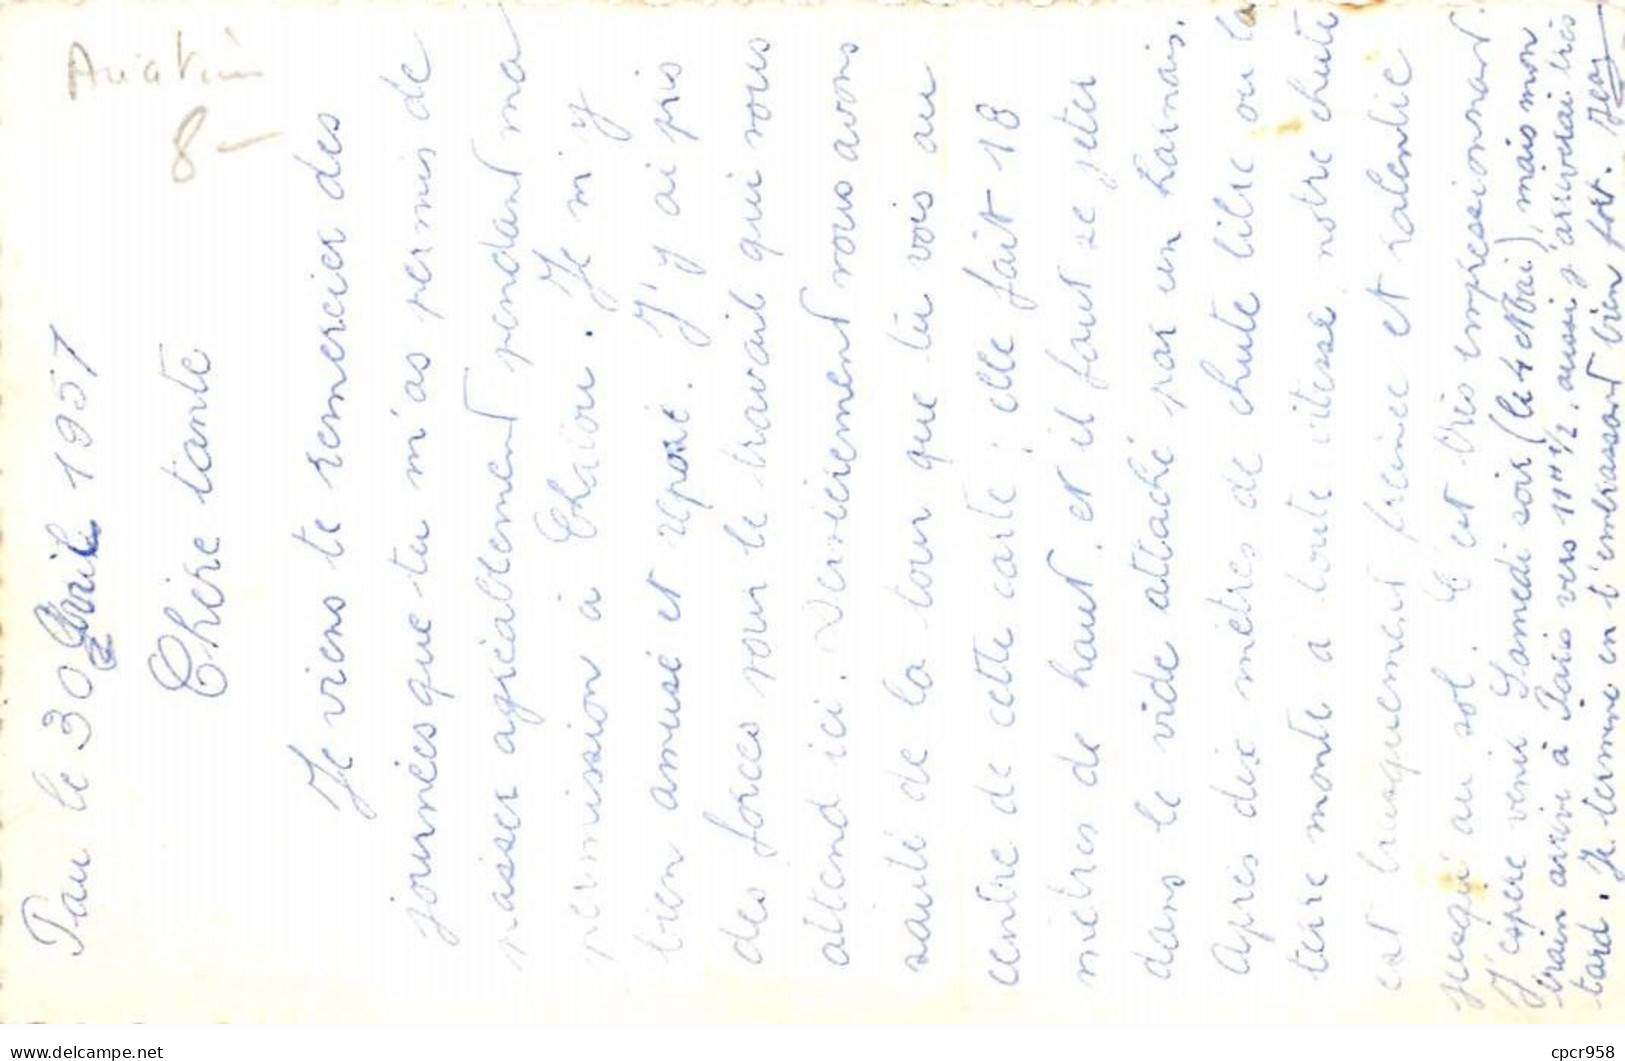 Aviation
8-
Pau le 30 Avril 1957
Chère tante
Je viens te remercier des
journées que tu m'as permis de
passer agréablement pendant ma
permission à Chatou. Je m'y
bien amusé et reposé. J'y ai pris
des forces pour le travail qui nous
attend ici. Dernièrement nous avons
sauté de la tour que tu vois au
centre de cette carte ; elle fait 18
mètres de haut, et il faut se jeter
dans le vide attaché par un harnais.
Après dix mètres de chute libre ou la
terre monte à toute vitesse, notre chute
est brusquement freinée et ralentie
jusqu'au sol. C'est très impressionnant.
J'espère venir Samedi soir (le 4 Mai), mais mon
train arrive à Paris vers 11H 1/2, aussi j'arriverai très
tard. Je termine en t'embrassant bien fort. Jean
delcampe.net
cpcr958